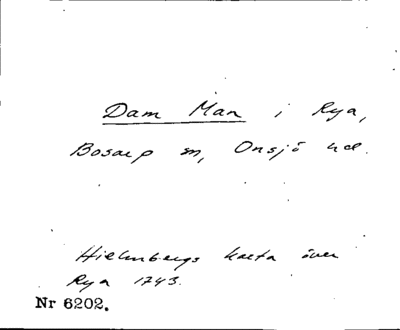 Dam Man i Rya,
Bosarp sn, Onsjö hd.
Hielmbergs karta över
Rya 1743.
Nr 6202.